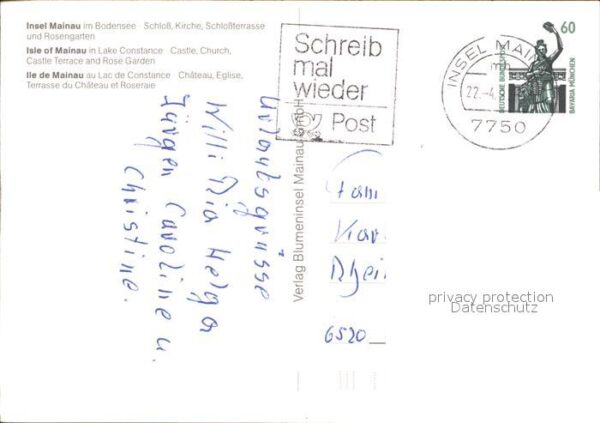 Insel Mainau im Bodensee Schloß, Kirche, Schloßterrasse
und Rosengarten
Isle of Mainau in Lake Constance Castle, Church,
Castle Terrace and Rose Garden
Ile de Mainau au Lac de Constance Château, Eglise,
Terrasse du Château et Roseraie
Schreib
mal
wieder
Post
INSEL MAIN
22.-4
7750
60
DEUTSCHE BUNDESPOST
BAVARIA MÜNCHEN
Verlag Blumeninsel Mainau GmbH
Urlaubsgrüsse
Willi Ria Helga
Jürgen Caroline u.
Christine.
Fam
Kar
Rhein
6520
privacy protection
Datenschutz